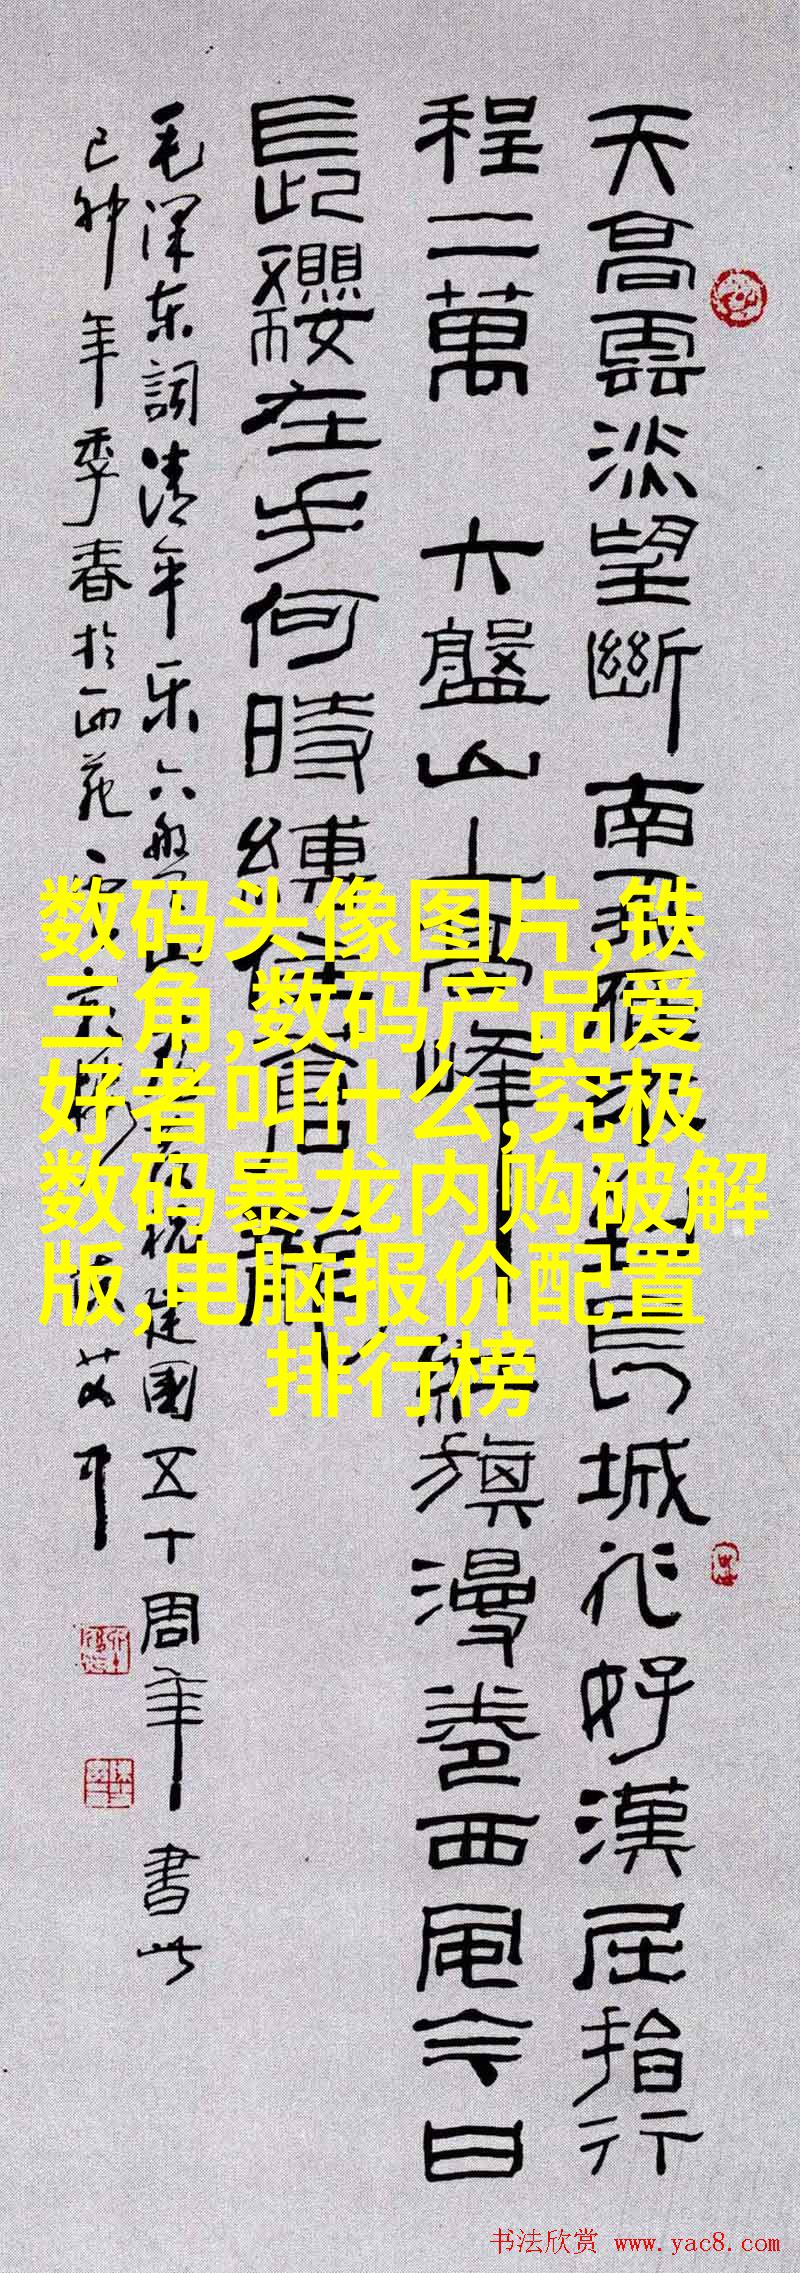 天高雲淡望斷南飛雁不到長城非好漢屈指行
程二萬 六盤山上高峰紅旗漫卷西風今日
長纓在手何時縛住蒼龍
毛泽东詞清平乐六盤山 祝建國五十周年書此
己卯年季春於西苑
数码头像图片,铁
三角,数码产品爱
好者叫什么,究极
数码暴龙内购破解
版,电脑报价配置
排行榜
书法欣赏 www.yac8.com